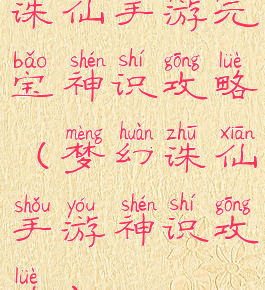 诛仙手游元
bǎo shén shí gōng lüè
宝神识攻略
mèng huàn zhū xiān
（梦幻诛仙
shǒu yóu shén shí gōng
手游神识攻
lüè